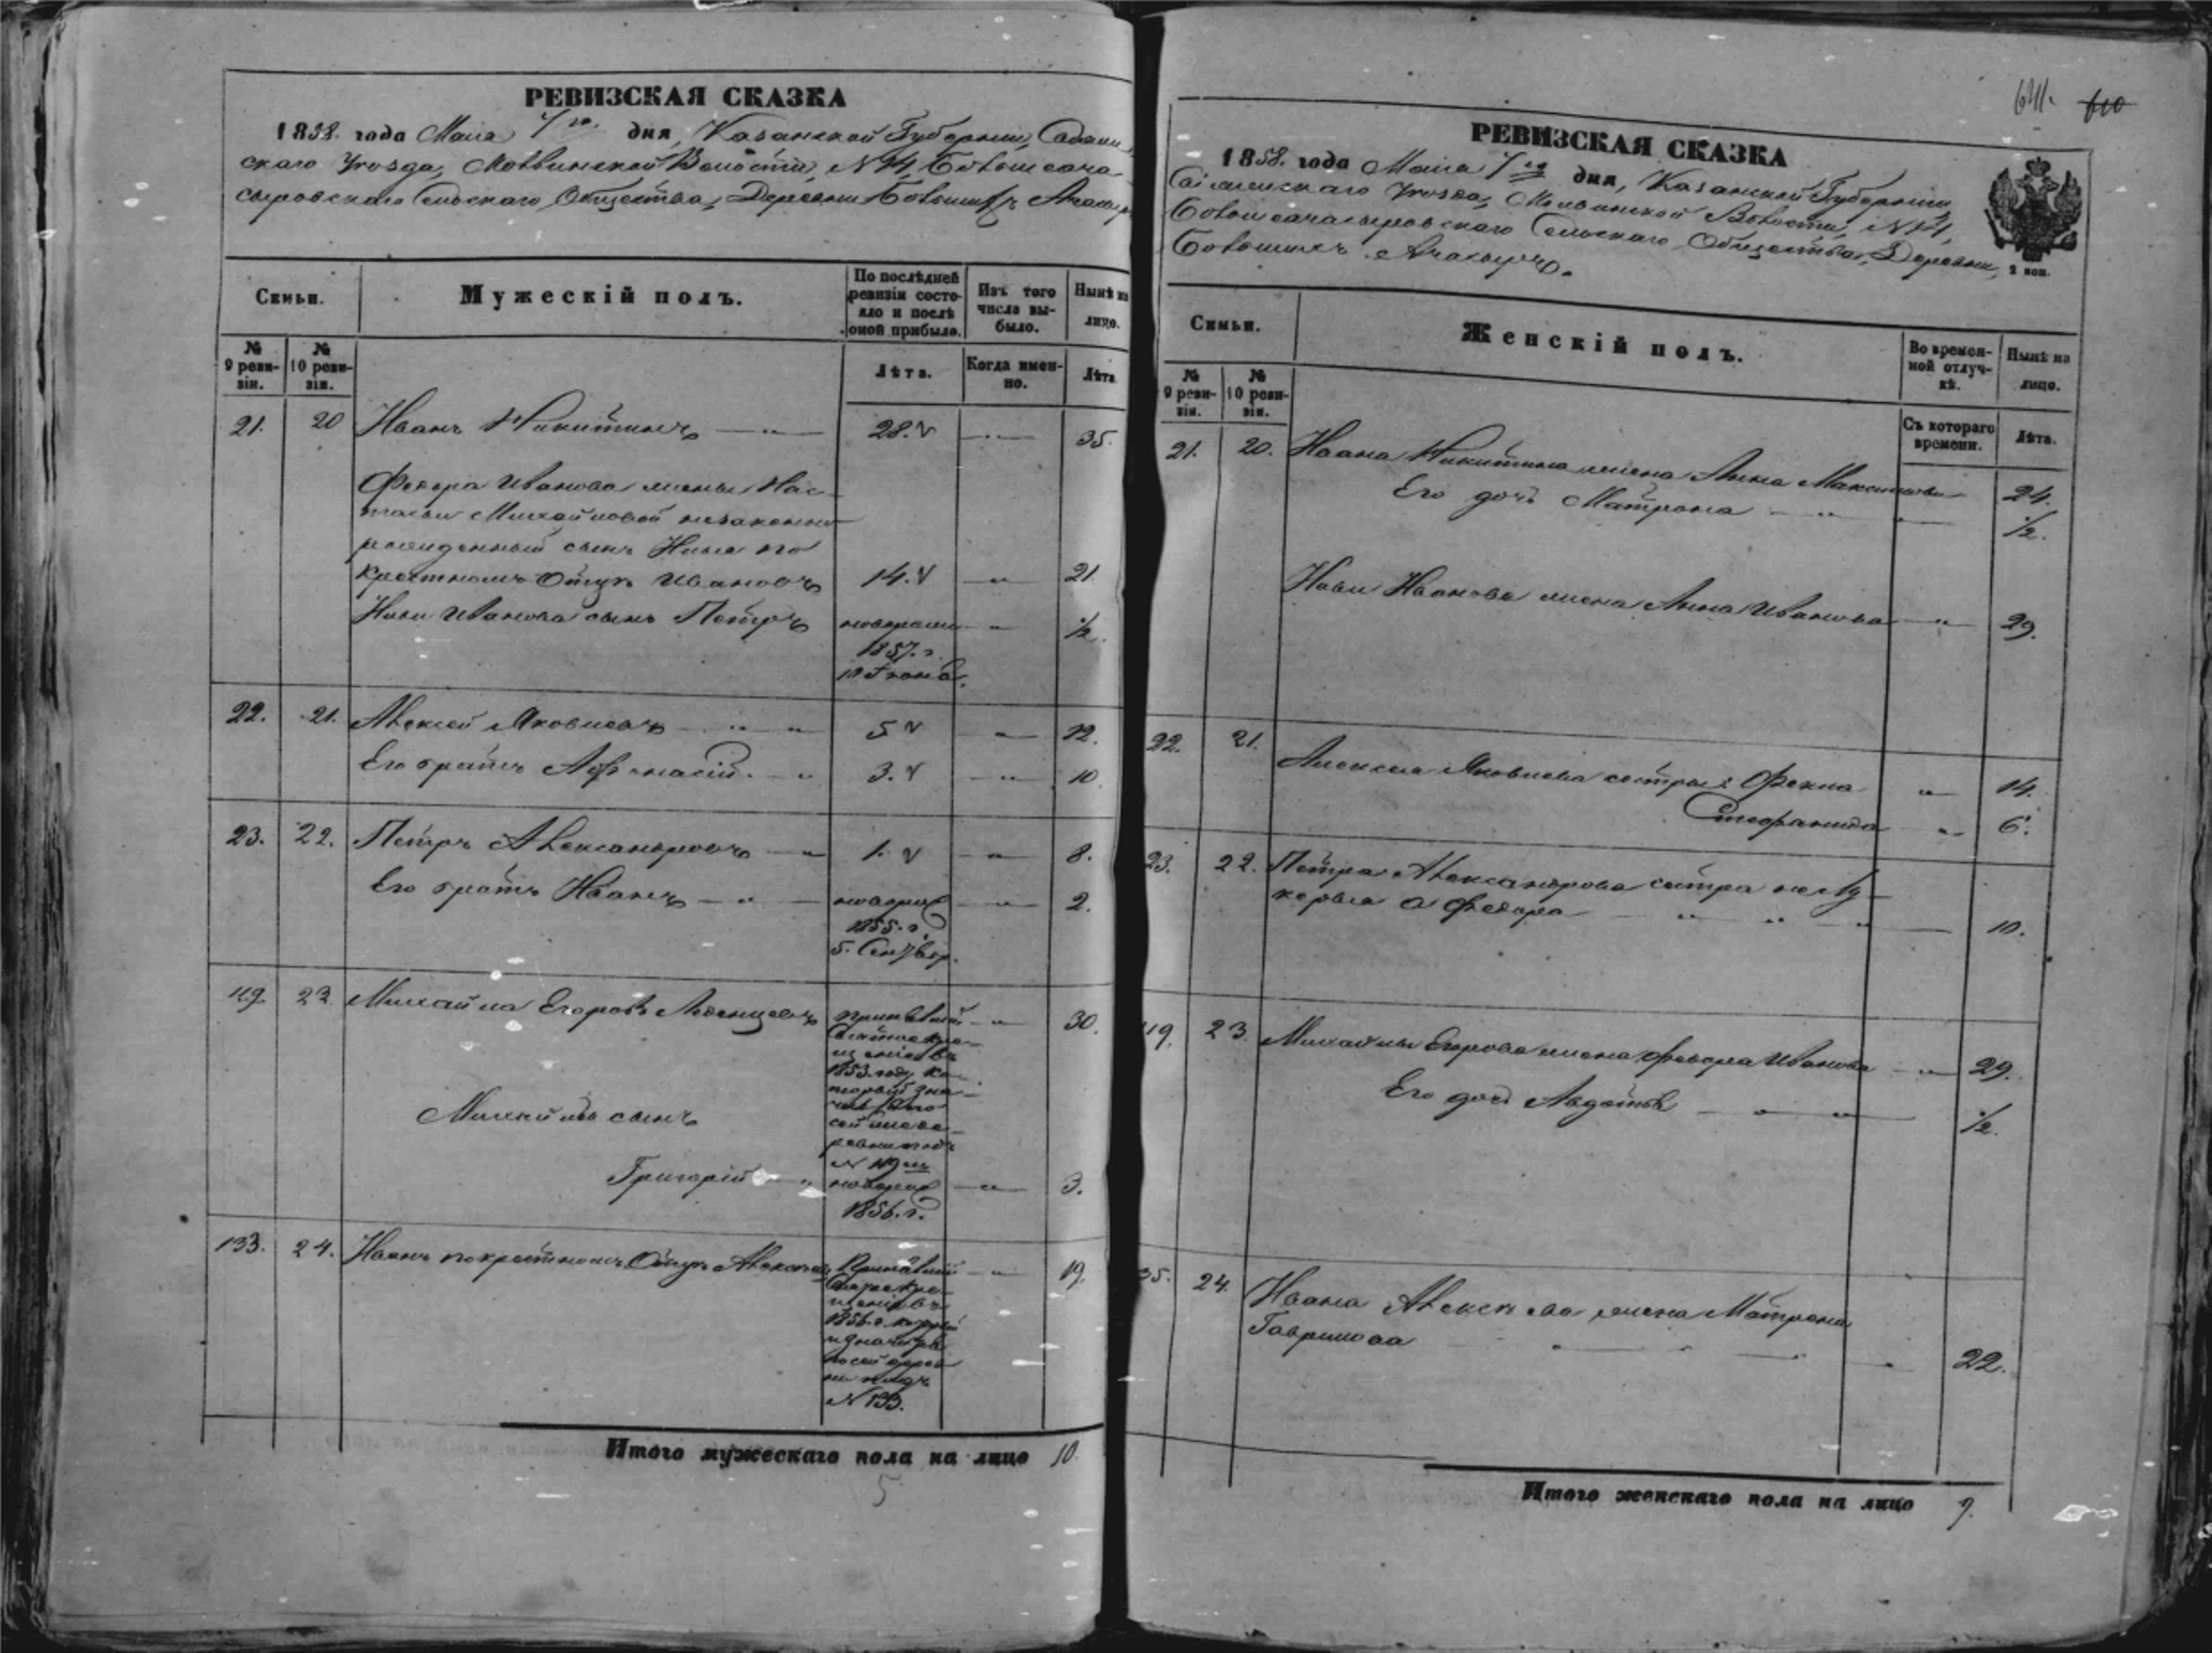 РЕВИЗСКАЯ СКАЗКА
1858. года Маія 7го. дня, Казанской Губерніи,
скаго Уѣзда, Волости, N 14, Большеача-
сыровскаго Сельскаго Общества, Деревни Большихъ
Семьи.
Мужескій полъ.
По послѣдней ревизіи состо-яло и послѣ оной прибыло.
Изъ того числа вы-было.
Нынѣ на лицо.
№ 9 реви-зіи.
№ 10 реви-зіи.
Лѣта.
Когда имен-но.
Лѣта
21. 20 Иванъ Никитинъ — " — 28. — " — 35.
Федора Иванова жены Нас-
тасьи Михайловой незаконно
рожденный сынъ Илья по
крестномъ Отцу Ивановъ 14. — " — 21.
Ильи Иванова сынъ Петръ новорожд — " — ½.
1857. г.
22. 21. Алексей Яковлевъ — " — " 5 — " — 12.
Его братъ Афонасій. — " 3. — " — 10
23. 22. Петръ Александровъ — " — 1. — " — 8.
Его братъ Иванъ — " — новорож — " — 2.
1855. г.
5. Сентябр.
119. 23 Михайла Егоровъ прибывшій — " — 30.
1853 году ко-
торый зна-
N 119
Михайлы сынъ
Григорій — " новорож — " — 3.
1856. г.
133. 24. Иванъ по крестномъ Отцу Алексѣевъ Прибывшій — " — 19.
1856. г. который
и значится
по сей дерев
ни подъ
N 133.
Итого мужескаго пола на лицо 10.
5
641. 610
РЕВИЗСКАЯ СКАЗКА
1858. года Маія 7го дня, Казанской Губерніи,
Уѣзда, Волости, N 14,
Большеачасыровскаго Сельскаго Общества, Деревни
Большихъ Ачасыръ.
2 коп.
Семьи.
Женскій полъ.
Во времен-ной отлуч-кѣ.
Нынѣ на лицо.
№ 9 реви-зіи.
№ 10 реви-зіи.
Съ котораго времени.
Лѣта.
21. 20. Ивана Никитина жена Анна Максимова 24.
Его дочь Матрона — " — ½.
Ильи Иванова жена Анна Иванова — " — 29.
22. 21. Алексея Яковлева сестры: Фекла " — 14.
Стефанида — " — 6.
23. 22. Петра Александрова сестра не Лу-
керья а Федора — " — " — " — 10.
119. 23. Михайлы Егорова жена Федора Иванова — " — 29.
Его дочь Авдотья — " — " — ½.
35. 24. Ивана Алексѣева жена Матрона
Гаврилова — " — " — " 22.
Итого женскаго пола на лицо 9.